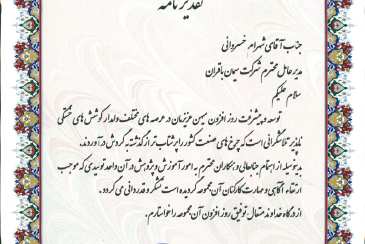 تقدیرنامه
جناب آقای شهرام خسروانی
مدیرعامل محترم شرکت سیمان باقران
سلام علیکم
توسعه و پیشرفت روز افزون میهن عزیزمان در عرصه های مختلف ولمدار کوشش های خستگی
ناپذیر تلاشگرانی است که چرخ های صنعت کشور را پرشتاب تر از گذشته به گردش درآوردند.
بدینوسیله از اهتمام جنابعالی و همکاران محترم به امور آموزش و پژوهش در آن واحد تولیدی که موجب
ارتقاء آگاهی و مهارت کارکنان آن مجموعه گردیده است تشکر و قدردانی می گردد.
از درگاه خداوند متعال توفیق روز افزون آن مجموعه را خواستارم.